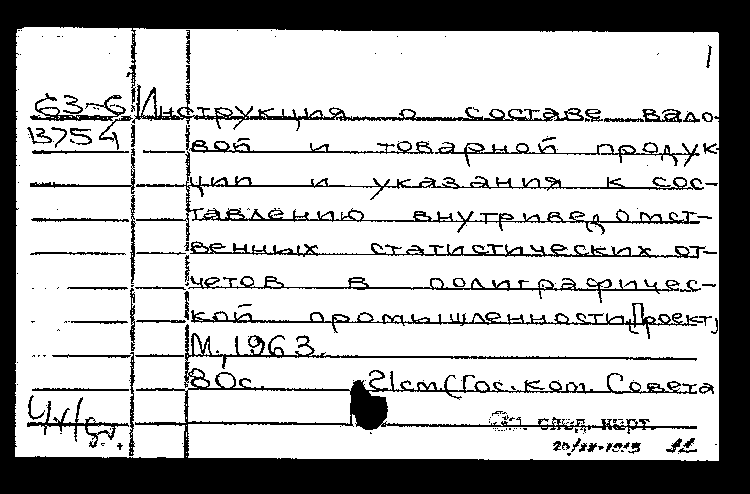 1
63-6 Инструкция о составе вало-
13754 вой и товарной продук-
ции и указания к сос-
тавлению внутриведомст-
венных статистических от-
четов в полиграфичес-
кой промышленности. [Проект]
М., 1963.
80с. 21см (Гос. ком. Совета
См. след. карт.